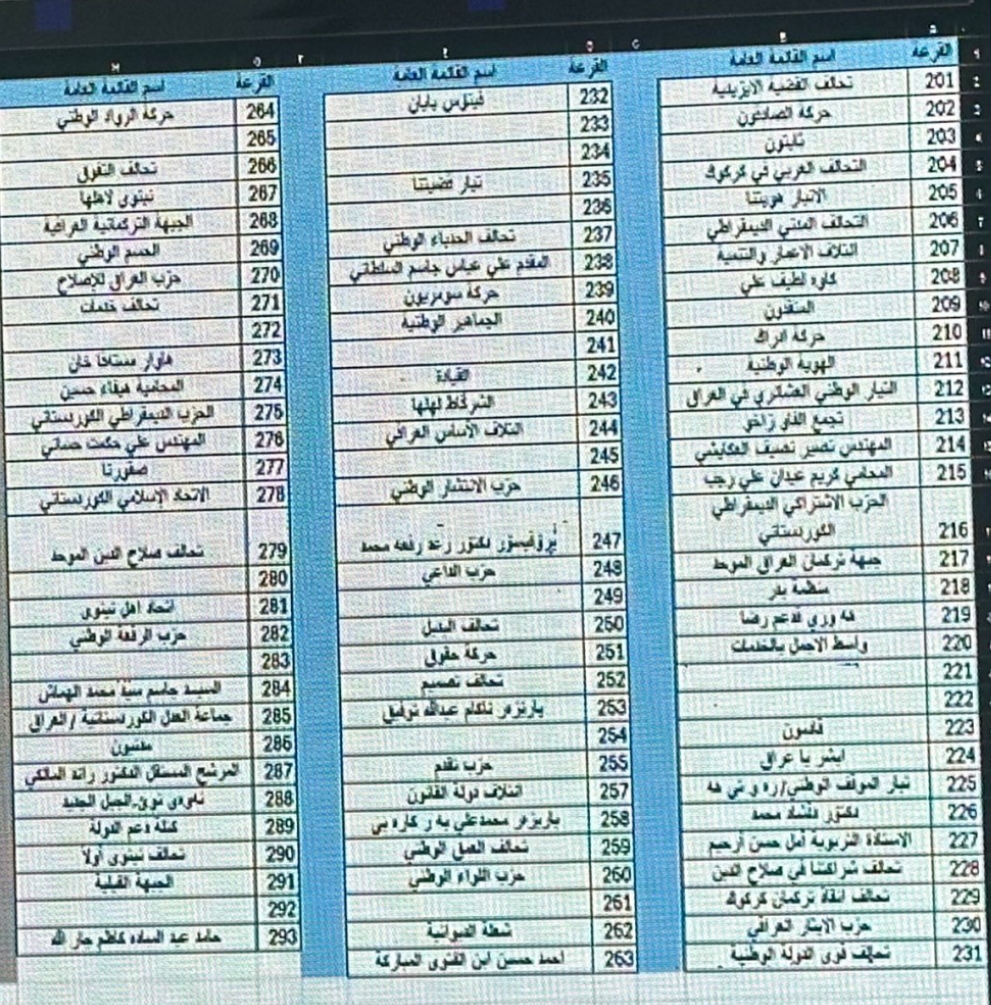 القرعة اسم القائمة العامة
201 تحالف القضية الايزيدية
202 حركة الصادقون
203 ثابتون
204 التحالف العربي في كركوك
205 الانبار هويتنا
206 التحالف المدني الديمقراطي
207 ائتلاف الاعمار والتنمية
208 كاوه لطيف علي
209 المنقذون
210 حركة ادراك
211 الهوية الوطنية
212 التيار الوطني العشائري في العراق
213 تجمع الفاو زاخو
214 المهندس نصير نصيف العكايشي
215 المحامي كريم عيدان علي رجب
216 الحزب الاشتراكي الديمقراطي
الكوردستاني
217 جبهة تركمان العراق الموحد
218 منظمة بدر
219 فه وزي قدعم رضا
220 واسط الاجمل بالخدمات
221
222
223 قادمون
224 ابشر يا عراق
225 تيار الموقف الوطني/ره وتي هه
226 دكتور دلشاد محمد
227 الاستاذة التربوية أمل حسن أرحيم
228 تحالف شراكتنا في صلاح الدين
229 تحالف انقاذ تركمان كركوك
230 حزب الايثار العراقي
231 تحالف قوى الدولة الوطنية
القرعة اسم القائمة العامة
232 فينوس بابان
233
234
235 تيار قضيتنا
236
237 تحالف الحدباء الوطني
238 المقدم علي عباس جاسم السلطاني
239 حركة سومريون
240 الجماهير الوطنية
241
242 القيادة
243 الشرقاط لهلها
244 ائتلاف الأساس العراقي
245
246 حزب الانتشار الوطني
247 بروفيسور دكتور رعد رفعه محمد
248 حزب الداعي
249
250 تحالف البديل
251 حركة حقوق
252 تحالف تصميم
253 پاريزەر ئاكام عبدالله توفيق
254
255 حزب تقدم
257 ائتلاف دولة القانون
258 پاريزەر محمدعلي به ر كاره يي
259 تحالف العمل الوطني
260 حزب اللواء الوطني
261
262 شعلة الديوانية
263 احمد حسن ابن الفتوى المباركة
القرعة اسم القائمة العامة
264 حركة الرواد الوطني
265
266 تحالف التفوق
267 نينوى لاهلها
268 الجبهة التركمانية العراقية
269 الحسم الوطني
270 حزب العراق للإصلاح
271 تحالف خدمات
272
273 هاوار مستافا خان
274 المحامية هيفاء حسين
275 الحزب الديمقراطي الكوردستاني
276 المهندس علي حكمت حساني
277 صقورنا
278 الاتحاد الإسلامي الكوردستاني
279 تحالف صلاح الدين الموحد
280
281 اتحاد اهل نينوى
282 حزب الرفعة الوطني
283
284 السيد جاسم سيد محمد الهماش
285 جماعة العدل الكوردستانية / العراق
286
287 المرشح المستقل الدكتور رائد المالكي
288 نەوەى نوێ-الجيل الجديد
289 كتلة دعم الدولة
290 تحالف نينوى أولا
291 الجبهة الفيلية
292
293 حامد عبد الساده كاظم جار الله